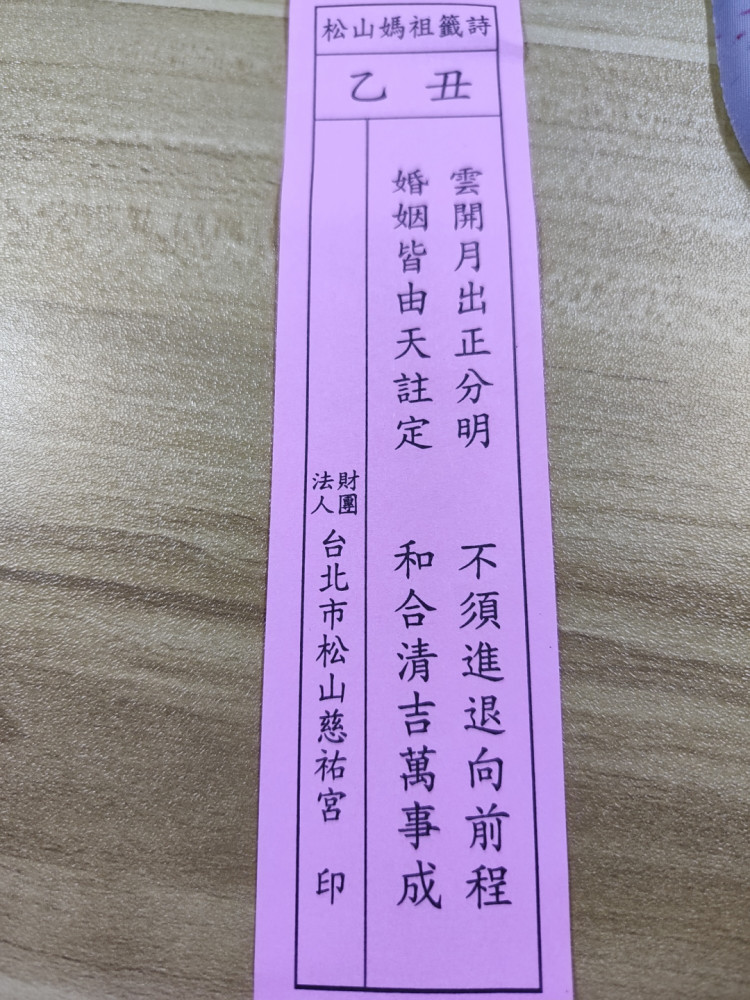 松山媽祖籤詩
乙丑
雲開月出正分明
不須進退向前程
婚姻皆由天註定
和合清吉萬事成
財團法人
台北市松山慈祐宮 印